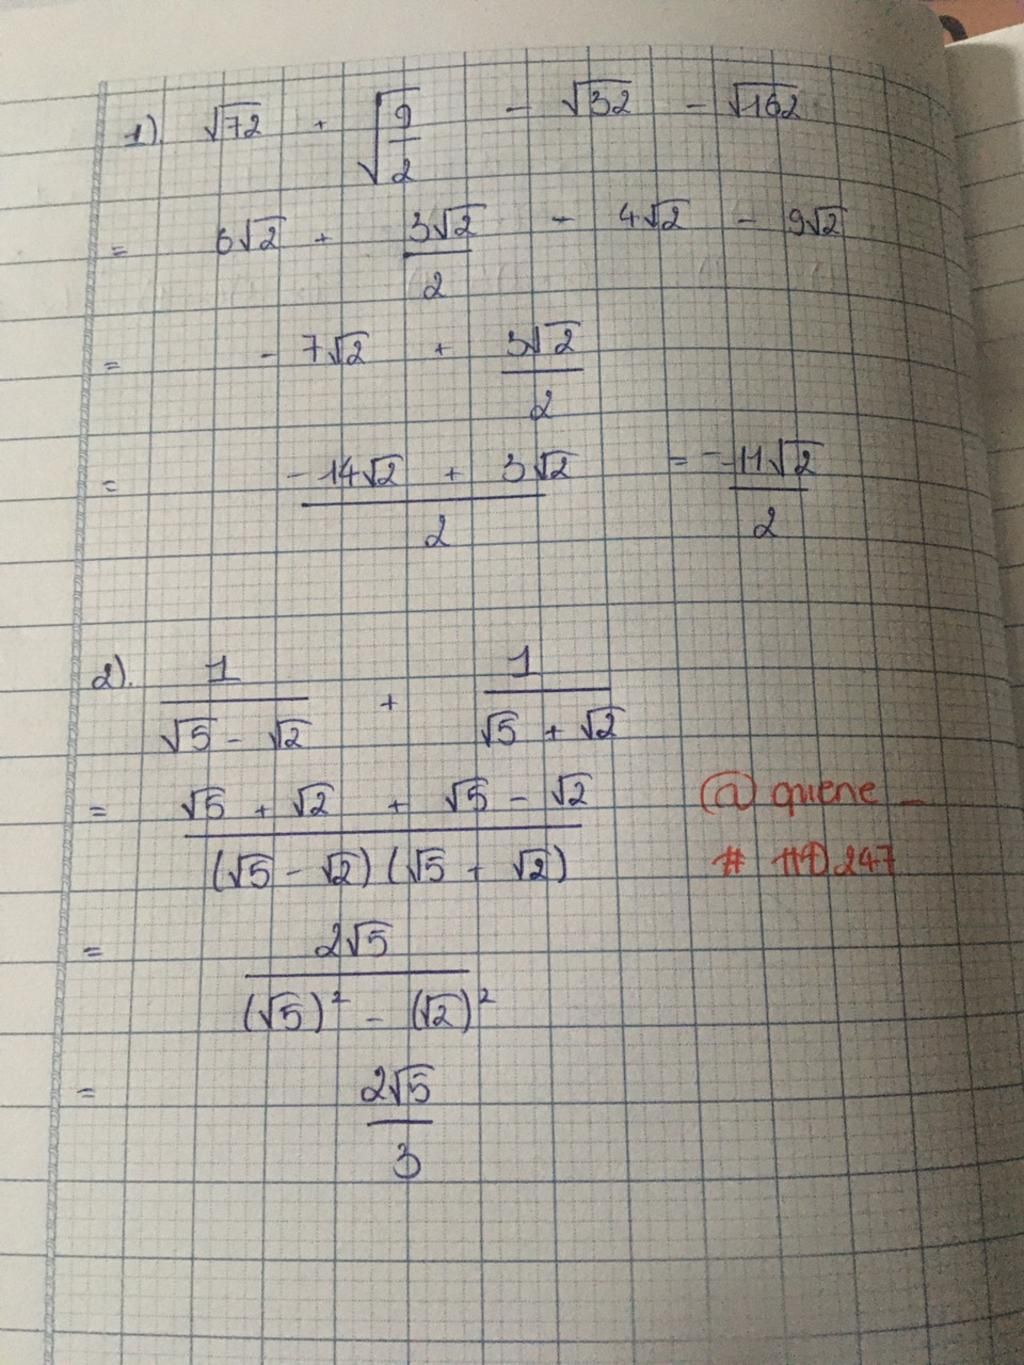 1). √72 + √(9/2) - √32 - √162
= 6√2 + 3√2/2 - 4√2 - 9√2
= - 7√2 + 3√2/2
= (-14√2 + 3√2)/2 = -11√2/2
2). 1/(√5 - √2) + 1/(√5 + √2)
= (√5 + √2 + √5 - √2)/((√5 - √2)(√5 + √2))
@ quene _
# 247
= 2√5/((√5)² - (√2)²)
= 2√5/3